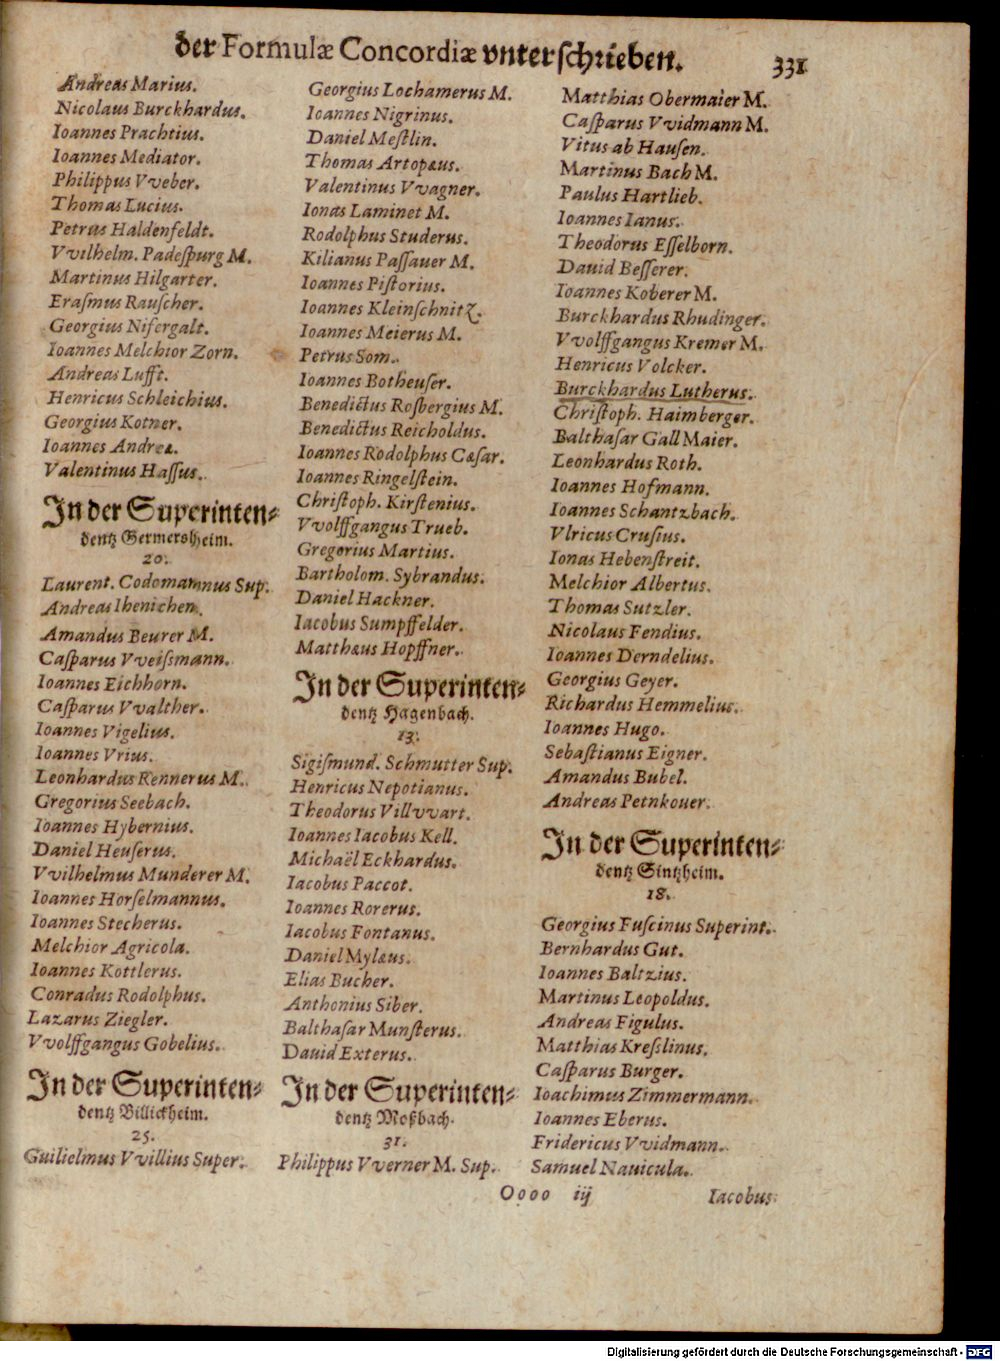 der Formulæ Concordiæ vnterschrieben. 331
Andreas Marius.
Nicolaus Burckhardus.
Ioannes Prachtius.
Ioannes Mediator.
Philippus Vveber.
Thomas Lucius.
Petrus Haldenfeldt.
Vvilhelm. Padeſpurg M.
Martinus Hilgarter.
Eraſmus Rauſcher.
Georgius Niſergalt.
Ioannes Melchior Zorn.
Andreas Lufft.
Henricus Schleichius.
Georgius Kotner.
Ioannes Andreæ.
Valentinus Haſſus.
In der Superinten⸗
dentz Germersheim.
20.
Laurent. Codomannus Sup.
Andreas Ihenichen.
Amandus Beurer M.
Caſparus Vveiſsmann.
Ioannes Eichhorn.
Caſparus Vvalther.
Ioannes Vigelius.
Ioannes Vrius.
Leonhardus Rennerus M.
Gregorius Seebach.
Ioannes Hybernius.
Daniel Heuſerus.
Vvilhelmus Munderer M.
Ioannes Horſelmannus.
Ioannes Stecherus.
Melchior Agricola.
Ioannes Kottlerus.
Conradus Rodolphus.
Lazarus Ziegler.
Vvolffgangus Gobelius.
In der Superinten⸗
dentz Billickheim.
25.
Guilielmus Vvillius Super.
Georgius Lochamerus M.
Ioannes Nigrinus.
Daniel Meſtlin.
Thomas Artopæus.
Valentinus Vvagner.
Ionas Laminet M.
Rodolphus Studerus.
Kilianus Paſſauer M.
Ioannes Piſtorius.
Ioannes Kleinſchnitz.
Ioannes Meierus M.
Petrus Som.
Ioannes Botheuſer.
Benedictus Roſbergius M.
Benedictus Reicholdus.
Ioannes Rodolphus Cæſar.
Ioannes Ringelſtein.
Chriſtoph. Kirſtenius.
Vvolffgangus Trueb.
Gregorius Martius.
Bartholom. Sybrandus.
Daniel Hackner.
Iacobus Sumpffelder.
Matthæus Hopffner.
In der Superinten⸗
dentz Hagenbach.
13.
Sigiſmund. Schmutter Sup.
Henricus Nepotianus.
Theodorus Villvvart.
Ioannes Iacobus Kell.
Michaël Eckhardus.
Iacobus Paccot.
Ioannes Rorerus.
Iacobus Fontanus.
Daniel Mylæus.
Elias Bucher.
Anthonius Siber.
Balthaſar Munſterus.
Dauid Exterus.
In der Superinten⸗
dentz Moßbach.
31.
Philippus Vverner M. Sup.
Matthias Obermaier M.
Caſparus Vvidmann M.
Vitus ab Hauſen.
Martinus Bach M.
Paulus Hartlieb.
Ioannes Ianus.
Theodorus Eſſelborn.
Dauid Beſſerer.
Ioannes Koberer M.
Burckhardus Rhudinger.
Vvolffgangus Kremer M.
Henricus Volcker.
Burckhardus Lutherus.
Chriſtoph. Haimberger.
Balthaſar Gall Maier.
Leonhardus Roth.
Ioannes Hofmann.
Ioannes Schantzbach.
Vlricus Cruſius.
Ionas Hebenſtreit.
Melchior Albertus.
Thomas Sutzler.
Nicolaus Fendius.
Ioannes Derndelius.
Georgius Geyer.
Richardus Hemmelius.
Ioannes Hugo.
Sebaſtianus Eigner.
Amandus Bubel.
Andreas Petnkouer.
In der Superinten⸗
dentz Sintzheim.
18.
Georgius Fuſcinus Superint.
Bernhardus Gut.
Ioannes Baltzius.
Martinus Leopoldus.
Andreas Figulus.
Matthias Kreſslinus.
Caſparus Burger.
Ioachimus Zimmermann.
Ioannes Eberus.
Fridericus Vvidmann.
Samuel Nauicula.
Oooo iij Iacobus
Digitalisierung gefördert durch die Deutsche Forschungsgemeinschaft - DFG